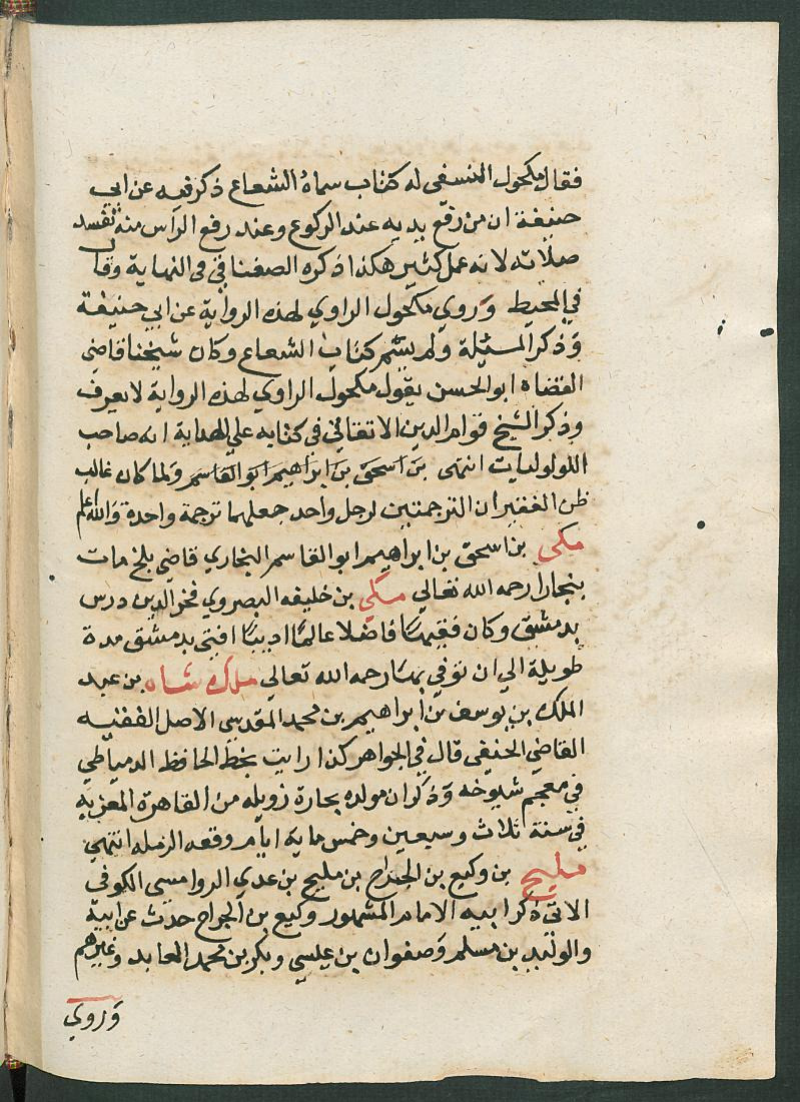 فقال مكحول النسفي له كتاب سماه الشعاع ذكر فيه عن ابي
حنيفة ان من رفع يديه عند الركوع وعند رفع الراس منه تفسد
صلاته لانه عمل كثير هكذا ذكره الصغناقي في النهاية وقال
في المحيط وروي مكحول الراوي لهذه الرواية عن ابي حنيفة
وذكر المسئلة ولم يسم كتاب الشعاع وكان شيخنا قاضي
القضاة ابو الحسن يقول مكحول الراوي لهذه الرواية لا يعرف
وذكر الشيخ قوام الدين الاتقاني في كتابه علي الهداية انه صاحب
اللولوليات انتهى بن اسحق بن ابراهيم ابو القاسم ولما كان غالب
ظن الفقير ان الترجمتين لرجل واحد جعلهما ترجمة واحدة والله اعلم
مكي بن اسحق بن ابراهيم ابو القاسم البخاري قاضي بلخ مات
ببخارا رحمه الله تعالي مكي بن خليفه البصروي فخر الدين درس
بدمشق وكان فقيها فاضلا عالما اديبا افتي بدمشق مدة
طويلة الي ان توفي بها رحمه الله تعالي ملك شاه بن عبد
الملك بن يوسف بن ابراهيم بن محمد المقدسي الاصل الفقيه
القاضي الحنفي قال في الجواهر كذا رايت بخط الحافظ الدمياطي
في معجم شيوخه وذكر ان مولده بحارة زويله من القاهرة المعزيه
في سنة ثلاث وسبعين وخمس مايه ايام وقعه الرمله انتهي
مليح بن وكيع بن الجراح بن مليح بن عدي الرواسي الكوفي
الاتي ذكر ابيه الامام المشهور وكيع بن الجراح حدث عن ابيه
والوليد بن مسلم وصفوان بن عيسي وبكر بن محمد العابد وغيرهم
وروي